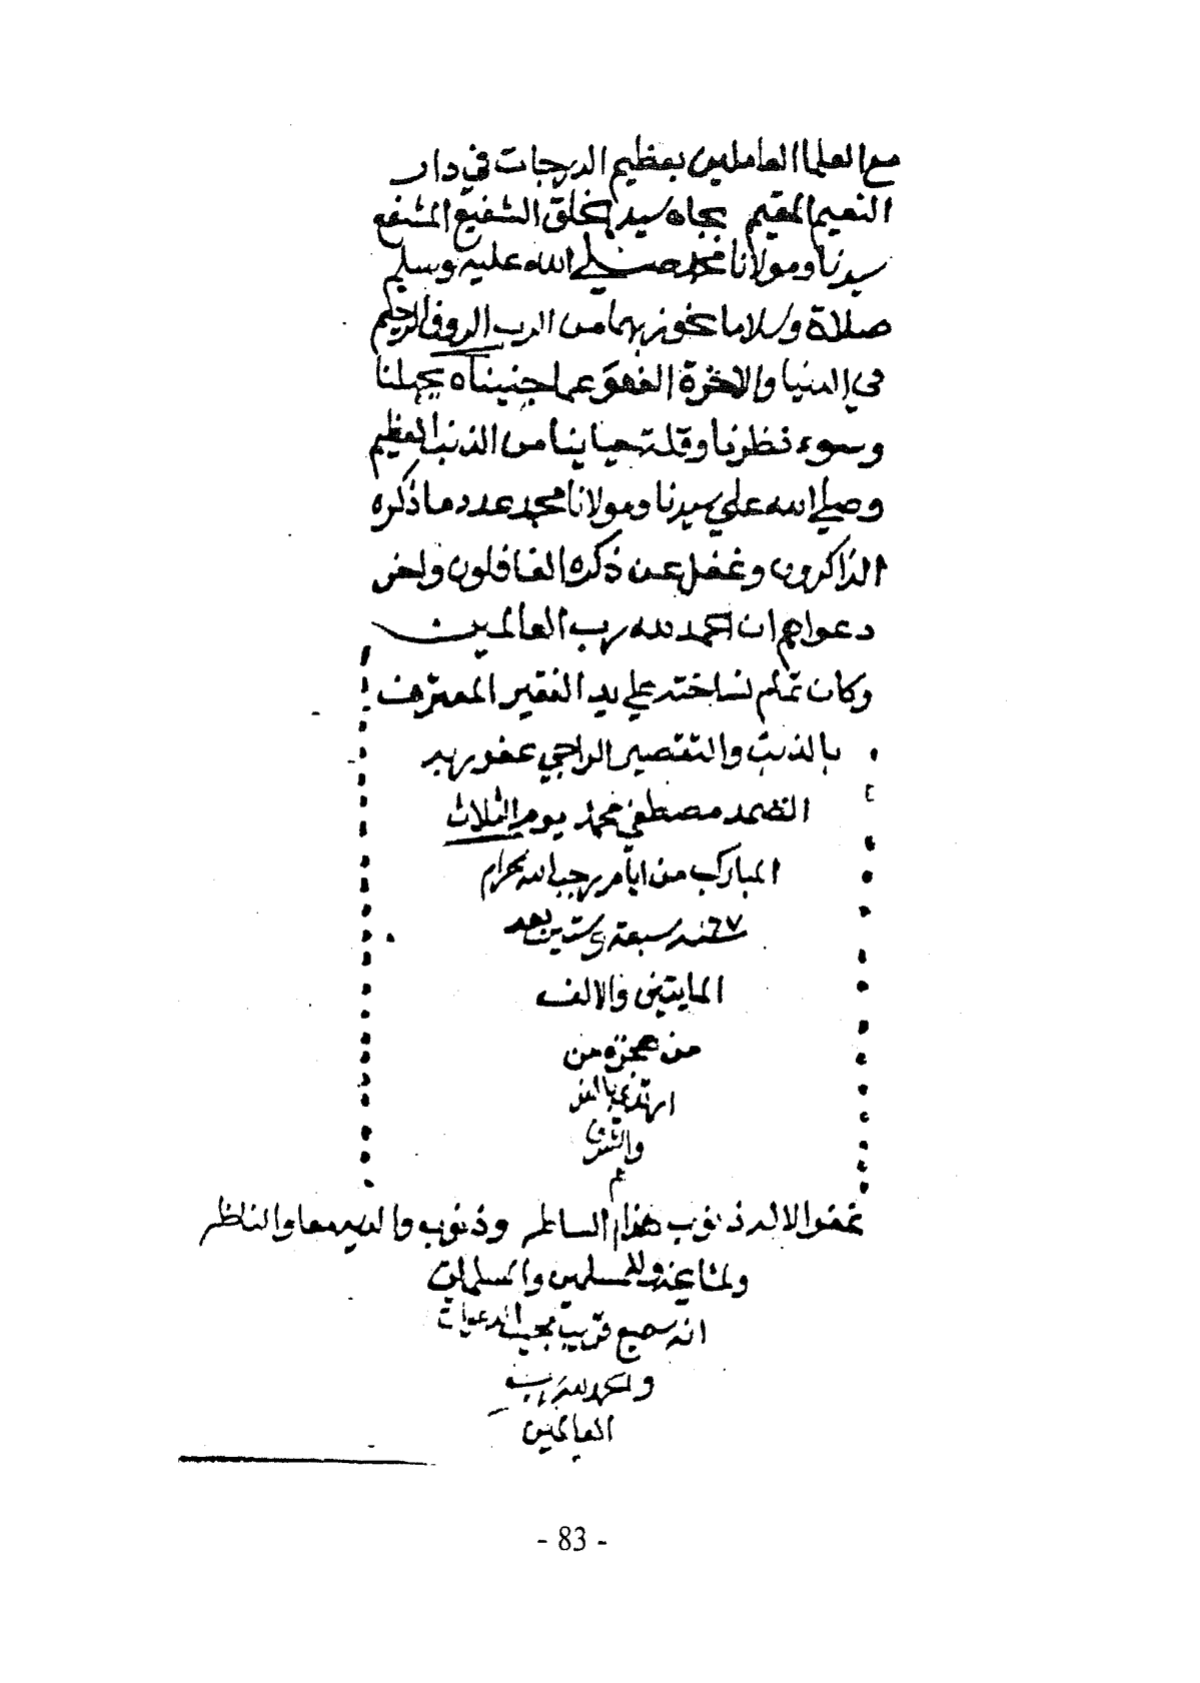 مع العلما العاملين بعظيم الدرجات في دار
النعيم المقيم بجاه سيد الخلق الشفيع المشفع
سيدنا ومولانا محمد صلي الله عليه وسلم
صلاة وسلاما نحوز بهما من الرب الروف الرحيم
في الدنيا والاخرة العفو عما جنيناه بجهلنا
وسوء نظرنا وقلت حيا ينا من الذنب العظيم
وصلي الله علي سيدنا ومولانا محمد عدد ما ذكره
الذاكرون وغفل عن ذكره الغافلون واخر
دعواهم ان الحمد لله رب العالمين
وكان تمام نساخته علي يد الفقير المعترف
بالذنب والتقصير الراجي عفو ربه
الصمد مصطفي محمد يوم الثلاث
المبارك من ايام رجب الله الحرام
٦٧ سنه سبعة وستين بعد
المايتين والالف
من هجرة من
ارتدي بالعز
والشرف
م
غفر الاله ذنوب هذا وذنوب والديه معا والناظر
ولمشايخه وللمسلمين والمسلمات
انه سميع قريب مجيب الدعوات
والحمد لله رب
العالمين
- 83 -